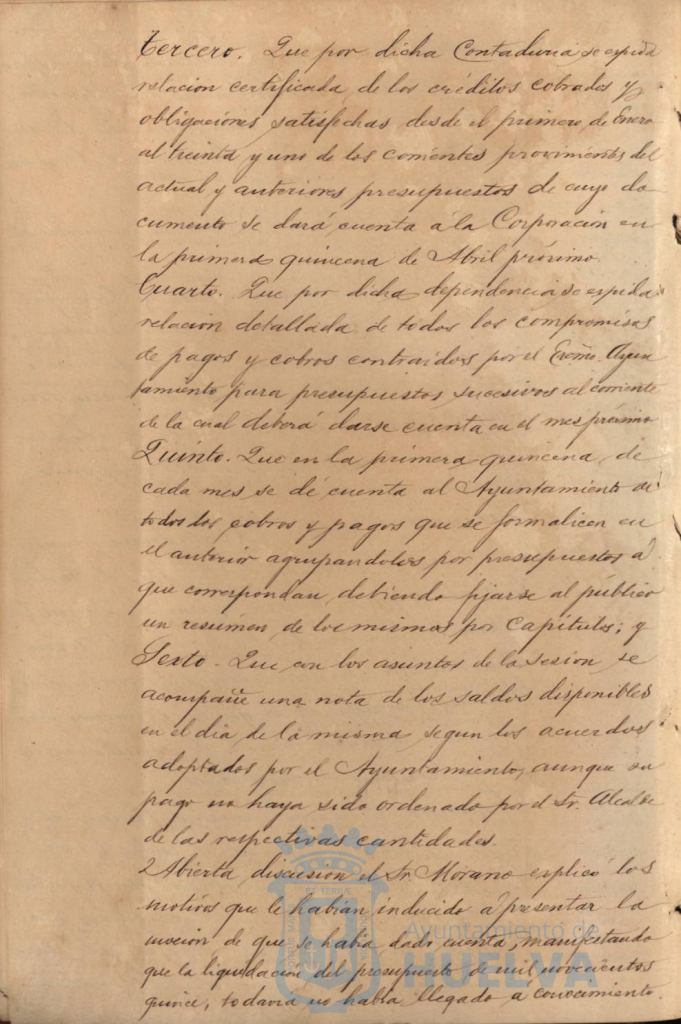 tercero. Que por dicha Contaduria se expida
relacion certificada de los créditos cobrados y
obligaciones satisfechas desde el primero de Enero
al treinta y uno de los corrientes provinientes del
actual y anteriores presupuestos de cuyo do
cumento se dará cuenta á la Corporacion en
la primera quincena de Abril próximo.
Cuarto. Que por dicha dependencia se expida
relacion detallada de todos los compromisos
de pagos y cobros contraidos por el Excmo. Ayun
tamiento para presupuestos sucesivos al corriente
de la cual deberá darse cuenta en el mes próximo
Quinto. Que en la primera quincena de
cada mes se dé cuenta al Ayuntamiento de
todos los cobros y pagos que se formalicen en
el anterior agrupandolos por presupuestos á
que correspondan, debiendo fijarse al público
un resúmen de los mismos por Capítulos; y
Sexto. Que con los asuntos de la sesion se
acompañe una nota de los saldos disponibles
en el dia de la misma, segun los acuerdos
adoptados por el Ayuntamiento, aunque su
pago no haya sido ordenado por el Sr. Alcalde
de las respectivas cantidades.
Abierta discusion el Sr. Morano explicó los
motivos que le habían inducido á presentar la
mocion de que se había dado cuenta, manifestando
que la liquidacion del presupuesto de mil novecientos
quince, todavia no habia llegado a conocimiento.
Ayuntamiento de
HUELVA